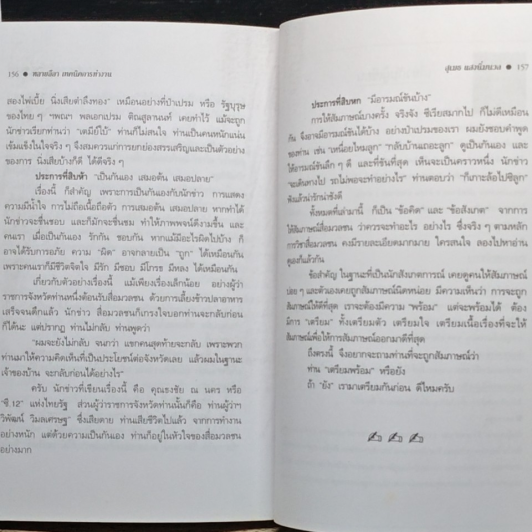 156 ● หลายลีลา เทคนิคการทำงาน
สองไพ่เบี้ย นิ่งเสียตำลึงทอง" เหมือนอย่างที่ป๋าเปรม หรือ รัฐบุรุษ
ของไทย ๆ "พณฯ พลเอกเปรม ติณสูลานนท์ เคยทำไว้ แม้จะถูก
นักข่าวเรียกท่านว่า "เตมีย์ใบ้" ท่านก็ไม่สนใจ ท่านเป็นคนหนักแน่น
เข้มแข็งในใจจริง ๆ จึงสมควรแก่การยกย่องสรรเสริญและเป็นตัวอย่าง
ของการ นิ่งเสียบ้างก็ดี ได้ดีจริง ๆ
ประการที่สิบห้า "เป็นกันเอง เสมอต้น เสมอปลาย"
เรื่องนี้ ก็สำคัญ เพราะการเป็นกันเองกับนักข่าว การแสดง
ความมีน้ำใจ การไม่ถือเนื้อถือตัว การเสมอต้น เสมอปลาย หากทำได้
นักข่าวจะชื่นชอบ และก็มักจะชื่นชม ทำให้ภาพพจน์ดีงามขึ้น และ
คนเรา เมื่อเป็นกันเอง รักกัน ชอบกัน หากแม้มีอะไรผิดไปบ้าง ก็
อาจได้รับการอภัย ความ "ผิด" อาจกลายเป็น "ถูก" ได้เหมือนกัน
เพราะคนเราก็มีชีวิตจิตใจ มีรัก มีชอบ มีโกรธ มีหลง ได้เหมือนกัน
เกี่ยวกับตัวอย่างเรื่องนี้ แม้เพียงเรื่องเล็กน้อย อย่างผู้ว่า
ราชการจังหวัดท่านหนึ่งต้อนรับสื่อมวลชน ด้วยการเลี้ยงข้าวปลาอาหาร
เสร็จจนดึกแล้ว นักข่าว สื่อมวลชนก็เกรงใจบอกท่านจะกลับก่อน
ก็ได้นะ แต่ปรากฏ ท่านไม่กลับ ท่านพูดว่า
"ผมจะยังไม่กลับ จนกว่า แขกคนสุดท้ายจะกลับ เพราะพวก
ท่านมาให้ความคิดเห็นที่เป็นประโยชน์ต่อจังหวัดเลย แล้วผมในฐานะ
เจ้าของบ้าน จะกลับก่อนได้อย่างไร"
ครับ นักข่าวที่เขียนเรื่องนี้ คือ คุณธงชัย ณ นคร หรือ
"ซี.12" แห่งไทยรัฐ ส่วนผู้ว่าราชการจังหวัดท่านนั้นก็คือ ท่านผู้ว่าฯ
วิพัฒน์ วิมลเศรษฐ" ซึ่งเสียดาย ท่านเสียชีวิตไปแล้ว จากการทำงาน
อย่างหนัก แต่ด้วยความเป็นกันเอง ท่านก็อยู่ในหัวใจของสื่อมวลชน
อย่างมาก
สุเมธ แสงนิ่มนวล ● 157
ประการที่สิบหก "มีอารมณ์ขันบ้าง"
การให้สัมภาษณ์บางครั้ง จริงจัง ซีเรียสมากไป ก็ไม่ดีเหมือน
กัน จึงอาจมีอารมณ์ขันได้บ้าง อย่างป๋าเปรมของเรา ผมยังชอบคำพูด
ของท่าน เช่น "เหนื่อยไหมลูก" "กลับบ้านเถอะลูก" ดูเป็นกันเอง และ
ให้อารมณ์ขันลึก ๆ ดี และที่ขันที่สุด เห็นจะเป็นคราวหนึ่ง นักข่าว
จะเดินทางไป รถไม่พอจะทำอย่างไร" ท่านตอบว่า "ก็เกาะล้อไปซีลูก"
ฟังแล้วน่ารักน่าชังดี
ทั้งหมดที่เล่ามานี้ ก็เป็น "ข้อคิด" และ "ข้อสังเกต" จากการ
ให้สัมภาษณ์สื่อมวลชน ว่าควรจะทำอะไร อย่างไร ซึ่งจริง ๆ ตามหลัก
การวิชาสื่อมวลชน คงมีรายละเอียดมากมาย ใครสนใจ ลองไปหาอ่าน
ดูเองก็แล้วกัน
ข้อสำคัญ ในฐานะที่เป็นนักสังเกตการณ์ เคยดูคนให้สัมภาษณ์
บ่อย ๆ และตัวเองเคยถูกสัมภาษณ์นิดหน่อย มีความเห็นว่า การจะถูก
สัมภาษณ์ให้ดีที่สุด เราจะต้องมีความ "พร้อม" แต่จะพร้อมได้ ต้อง
มีการ "เตรียม" ทั้งเตรียมตัว เตรียมใจ เตรียมเนื้อเรื่องที่จะให้
สัมภาษณ์เพื่อให้การสัมภาษณ์ออกมาดีที่สุด
ถึงตรงนี้ จึงอยากจะถามท่านที่จะถูกสัมภาษณ์ว่า
ท่าน "เตรียมพร้อม" หรือยัง
ถ้า "ยัง" เรามาเตรียมกันก่อน ดีไหมครับ